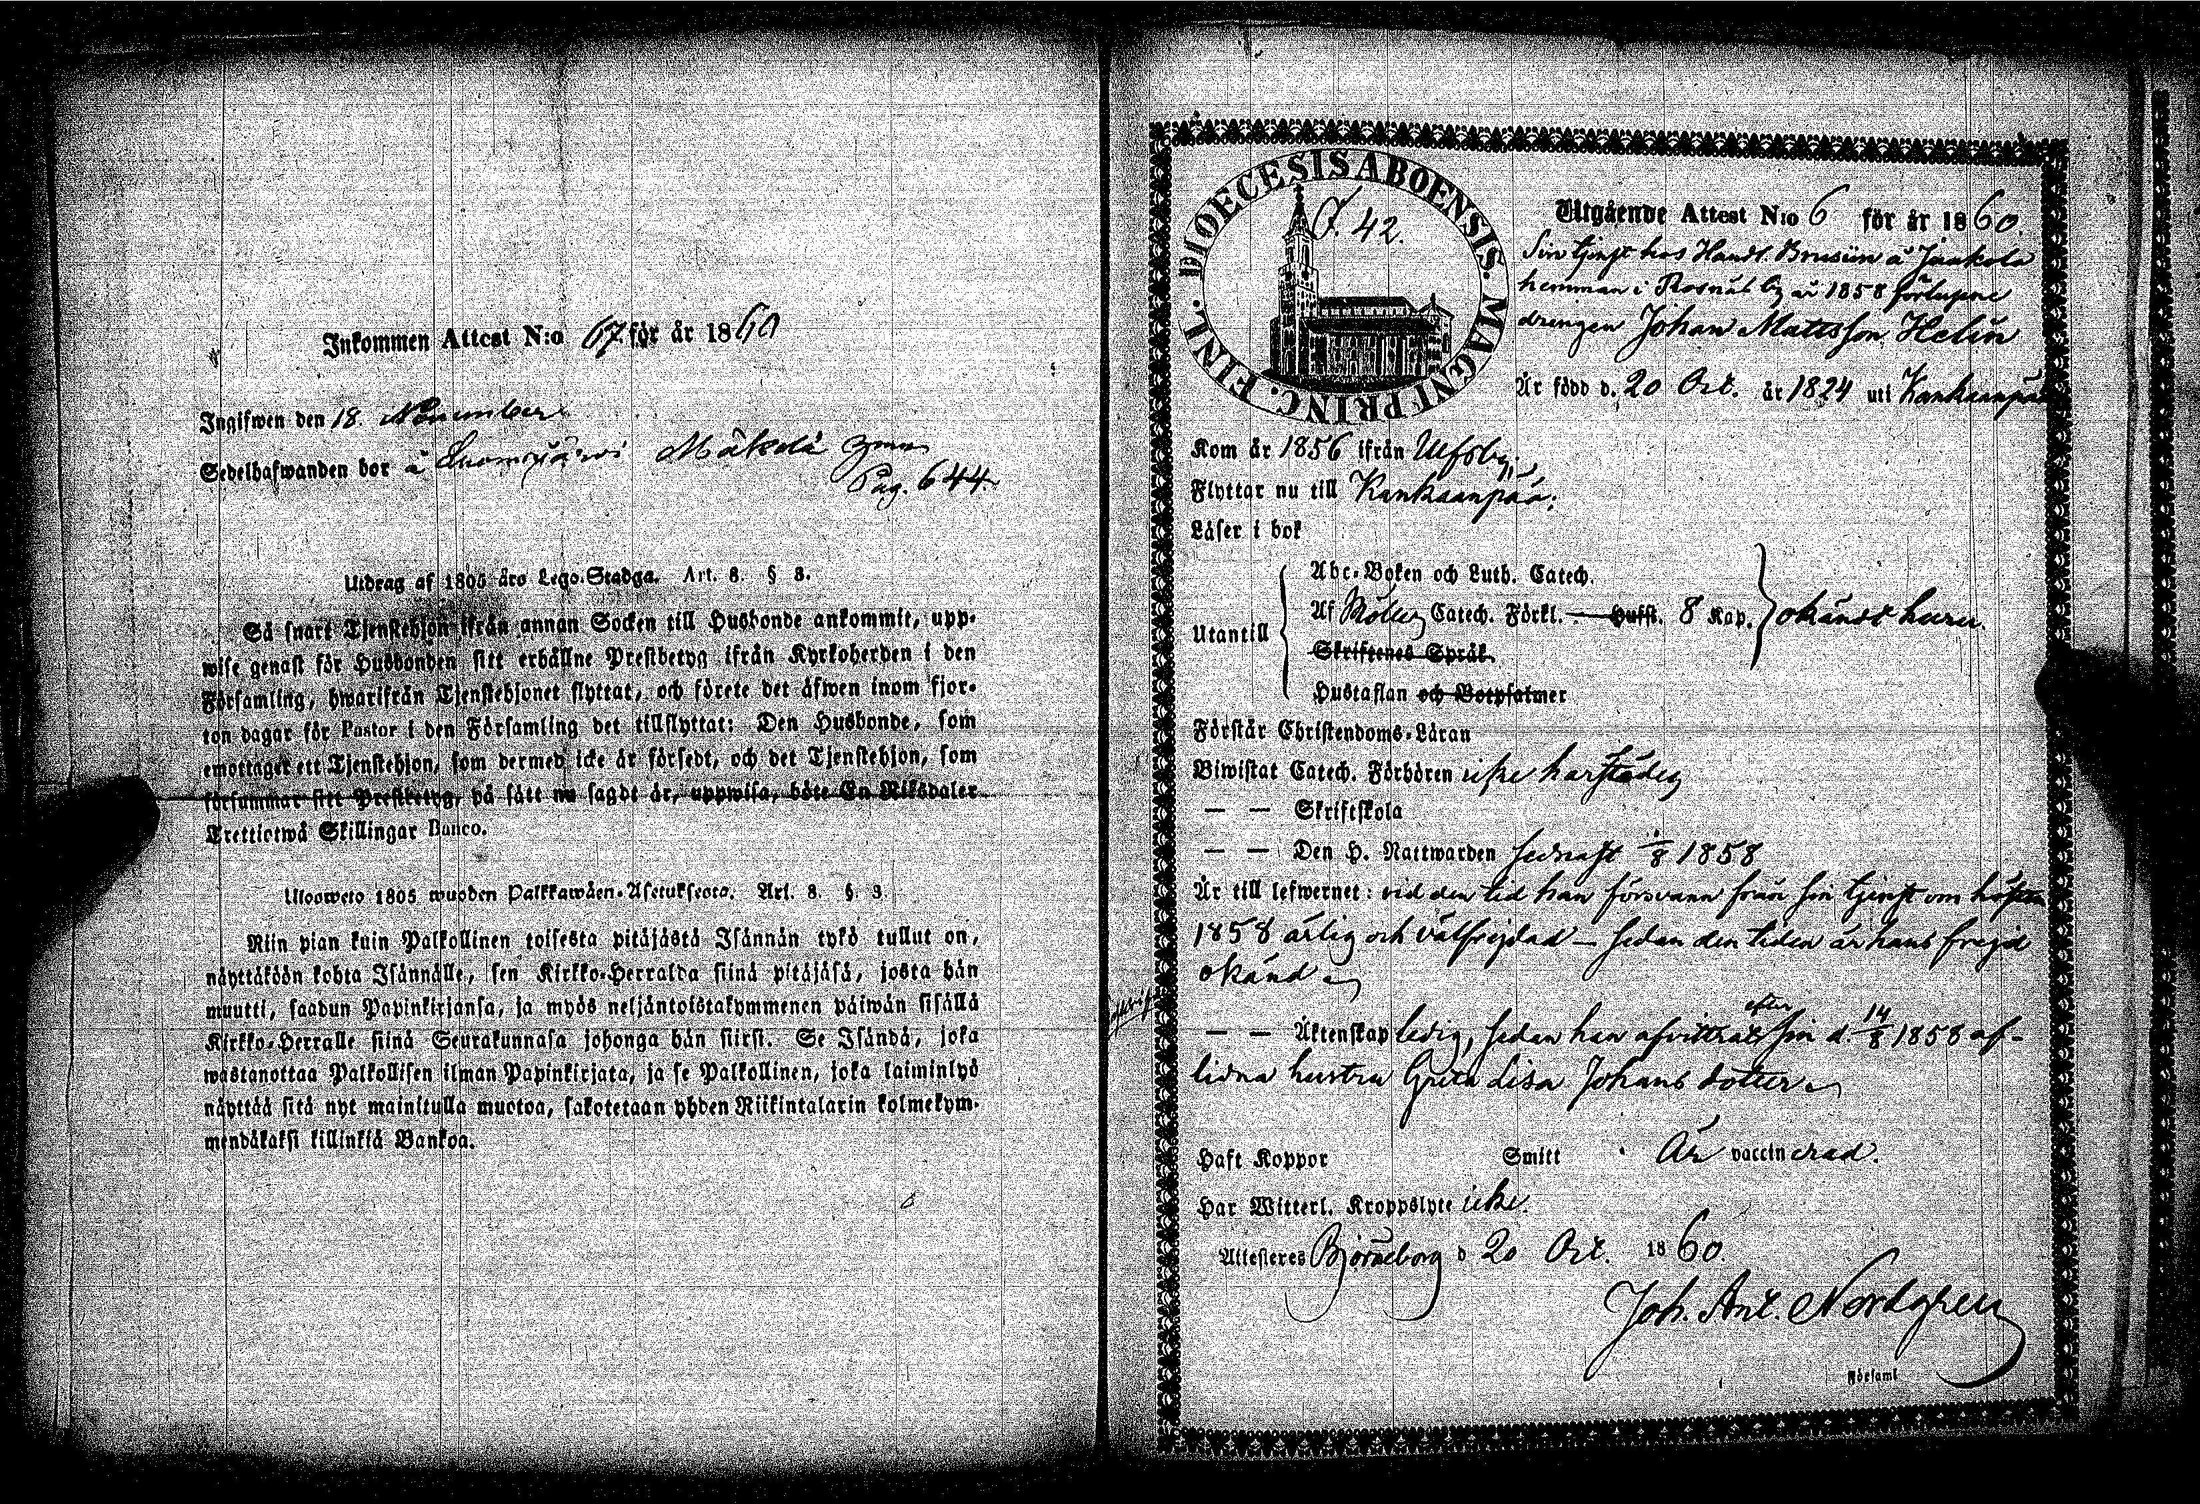 Inkommen Attest N:o 67 för år 1860
Ingifwen den 18. November
Sedelhafwanden bor å Luomajärvi Mäkelä
Pag. 644.
Utdrag af 1805 års Lego-Stadga. Art. 8. § 3.
Så snart Tjenstehjon ifrån annan Socken till Husbonde ankommit, upp-
wise genast för Husbonden sitt erhållne Prestbetyg ifrån Kyrkoherden i den
Församling, hwarifrån Tjenstehjonet flyttat, och förete det äfwen inom fjor-
ton dagar för Pastor i den Församling det tillflyttat: Den Husbonde, som
emottager ett Tjenstehjon, som dermed icke är försedt, och det Tjenstehjon, som
försummar sitt Prestbetyg, på sätt nu sagdt är, uppwisa, böte En Riksdaler
Trettiotwå Skillingar Banco.
Ulosweto 1805 wuoden Palkkawäen-Asetuksesta. Art. 8. §. 3.
Niin pian kuin Palkollinen toisesta pitäjästä Isännän tykö tullut on,
näyttäköön kohta Isännälle, sen Kirkko-Herralda siinä pitäjäsä, josta hän
muutti, saadun Papinkirjansa, ja myös neljäntoistakymmenen päiwän sisällä
Kirkko-Herralle siinä Seurakunnasa johonga hän siirsi. Se Isändä, joka
wastanottaa Palkollisen ilman Papinkirjata, ja se Palkollinen, joka laiminlyö
näyttää sitä nyt mainitulla muotoa, sakotetaan yhden Riikintalarin kolmekym-
mendäkaksi killinkiä Bankoa.
DIOECESIS ABOENSIS. MAGNI PRINC. FINL.
42.
Utgående Attest N:o 6 för år 1860.
Sin tjenst hos Handl. Brusiin å Jaakola
hemman i Rosnäs by år 1858 förlupne
drengen Johan Mattsson Helin
Är född d. 20 Oct. år 1824 uti Kankaanpää
Kom år 1856 ifrån Ulfsby.
Flyttar nu till Kankaanpää.
Läser i bok
Utantill
Abc-Boken och Luth. Catech.
Af Möllers Catech. Förkl. Hufst. 8 Kap. okändt huru.
Skriftenes Språk
Hustaflan och Botpsalmer
Förstår Christendoms-Läran
Biwistat Catech. Förhören icke härstädes
— — Skriftskola
— — Den H. Nattwarden sednast 1/8 1858
Är till lefwernet: vid den tid han försvann från sin tjenst om hösten
1858 ärlig och välfrejdad — sedan den tiden är hans frejd
okänd
— — Äktenskap ledig, sedan han afvittrat efter sin d. 14/8 1858 af-
lidna hustru Greta Lisa Johans dotter
Haft Koppor Smitt Är vaccinerad.
Har Witterl. Kroppslyte icke.
Attesteres Björneborg d 20 Oct. 1860.
Joh. Ant. Nordgren
Församl